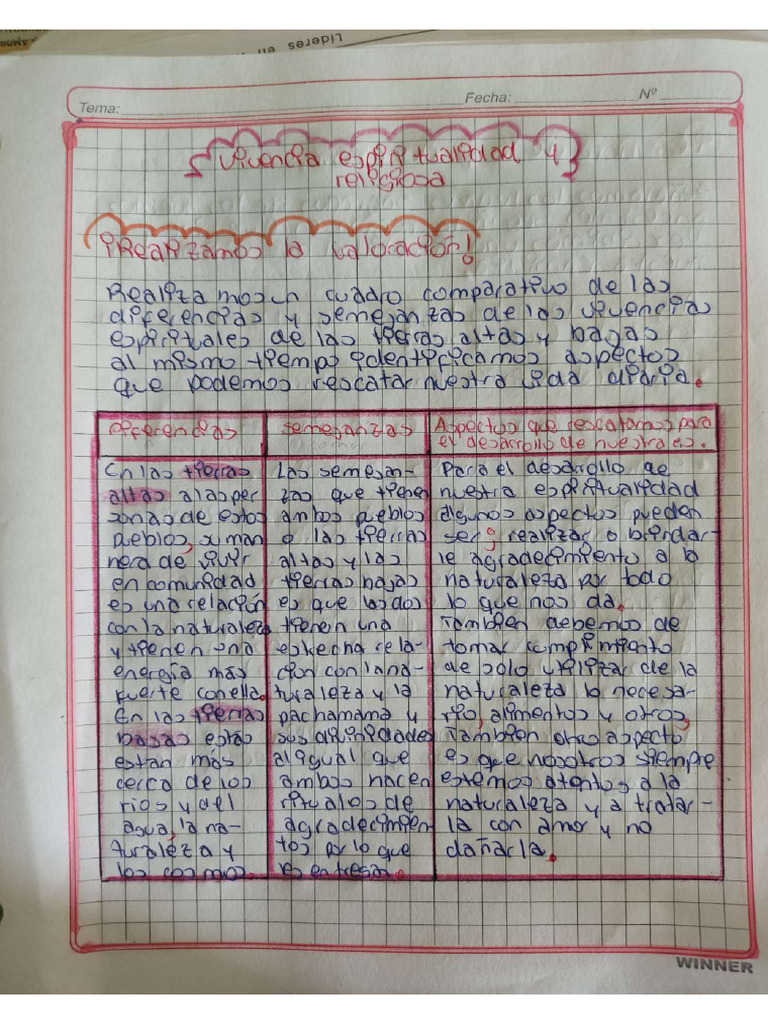 Lideres en
Tema:
Fecha:
Nº
vivencia espiritualidad y
religiosa
¡Realizamos la valoración!
Realizamos un cuadro comparativo de las
diferencias y semejanzas de las vivencias
espirituales de las tierras altas y bajas
al mismo tiempo identificamos aspectos
que podemos rescatar nuestra vida diaria.
Diferencias
En las tierras
altas a las per
sonas de estos
pueblos, su man
nera de vivir
en comunidad
es una relación
con la naturaleza
y tienen una
energía más
fuerte con ella.
En las tierras
bajas estas
están más
cerca de los
rios y del
agua, la na-
turaleza y
los cosmos.
semejanzas
Las semejan-
zas que tienen
ambos pueblos
o las tierras
altas y las
tierras bajas
es que las dos
tienen una
estrecha rela-
ción con la na-
turaleza y la
pachamama y
sus divinidades
al igual que
ambos hacen
rituales de
agradecimien
tos por lo que
les entregan.
Aspectos que rescatamos para
el desarrollo de nuestra es.
Para el desarrollo de
nuestra espiritualidad
algunos aspectos pueden
ser: realizar o brindar-
le agradecimiento a la
naturaleza por todo
lo que nos da.
También debemos de
tomar cumplimiento
de solo utilizar de la
naturaleza lo necesa-
rio, alimentos y otros,
También otro aspecto
es que nosotros siempre
estemos atentos a la
naturaleza y a tratar-
la con amor y no
dañarla.
WINNER